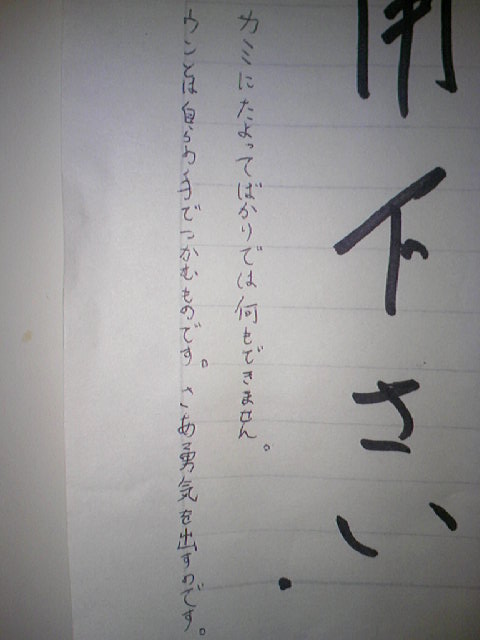 下さい
カミにたよってばかりでは何もできません。
ウンとは自らの手でつかむものです。さあ勇気を出すのです。